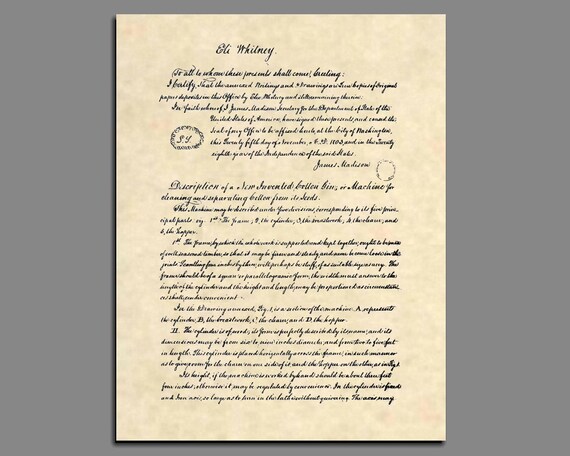 Eli Whitney.
To all to whom these presents shall come, Greeting:
I Certify, That the annexed Writings and Drawings are True Copies of Original
papers deposited in this Office by Eli Whitney and still remaining therein.
In faith whereof I, James Madison Secretary for the Department of State of the
United States of America, have signed these presents, and caused the
Seal of my Office to be affixed hereto, at the City of Washington,
this Twenty fifth day of November, A.D. 1803 and in the Twenty
eighth year of the Independence of the said States.
S.S.
James Madison
Description of a New Invented Cotton Gin; or Machine for
cleansing and separating Cotton from its Seeds.
This Machine may be described under five divisions, corresponding to its five princ-
ipal parts viz. 1st The frame, 2, the cylinder, 3, the breastwork, 4, the cleaner, and
5, the hopper.
1st The frame, by which the whole work is supported and kept together, ought to be made
of well seasoned timber, so that it may be firm and steady, and never become loose in the
joints. Scantling four inches by three, will perhaps be stuff, of
frame should be of a square or parallelogramic form, the width must answer to the
length of the cylinder and the height and length, may be proportioned as circumstan-
ces shall render convenient.
In the Drawing annexed, Fig. 1, is a section of the machine. A represents
the cylinder, B, the breastwork, C, the cleaner, and D, the hopper.
II. The cylinder is of wood; its form is perfectly described by its name; and its
dimensions may be from six to nine inches diameter, and from two to five feet
in length. This cylinder is placed horizontally across the frame, in such manner
as to give room for the cleaner on one side of it and the hopper on the other, as in Fig. 1
Its height, if the machine is worked by hand should be about three feet
four inches, otherwise it may be regulated by convenience. In the cylinder is fixed
and Iron axis, so large as to turn in the lathe without quivering. The axis may